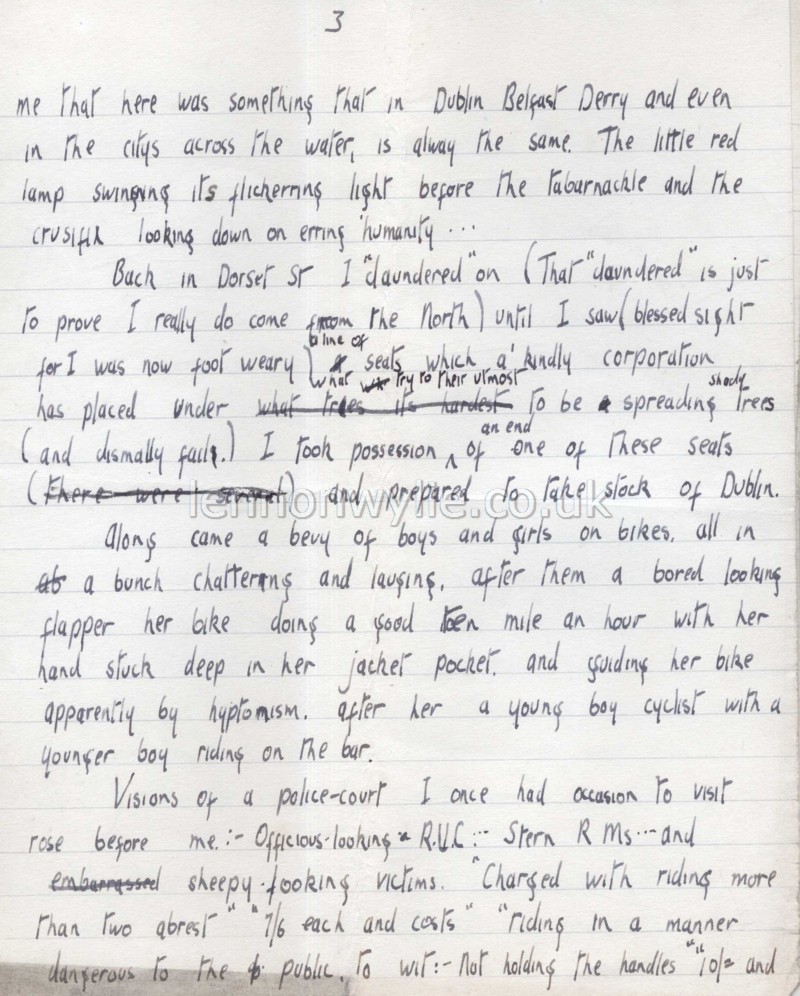 3
me that here was something that in Dublin Belfast Derry and even
in the citys across the water, is alway the same. The little red
lamp swinging its flickerring light before the tabarnackle and the
crusifix looking down on erring humanity ...
Back in Dorset St I "daundered" on (That "daundered" is just
to prove I really do come from the North) until I saw (blessed sight
for I was now foot weary) a line of seats which a kindly corporation
what try to their utmost shady
has placed under what tries its hardest to be a spreading trees
an end
(and dismally fails.) I took possession ^ of one of these seats
(there were several) and prepared to take stock of Dublin.
lennonwylie.co.uk
Along came a bevy of boys and girls on bikes, all in
a bunch chatterng and lauging, after them a bored looking
flapper her bike doing a good ten mile an hour with her
hand stuck deep in her jacket pocket. and guiding her bike
apparently by hyptomism. after her a young boy cyclist with a
younger boy riding on the bar.
Visions of a police-court I once had occasion to visit
rose before me :- Officious-looking R.U.C :- Stern R Ms -- and
embarrassed sheepy-looking victims. "Charged with riding more
than two abrest" "7/6 each and costs" "riding in a manner
dangerous to the public. to wit :- not holding the handles" "10/= and